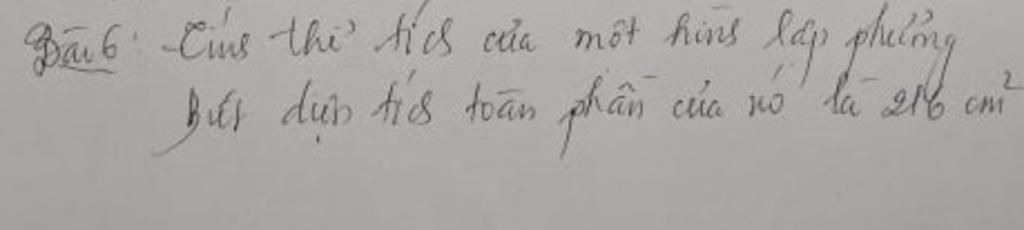 Bài 6: Tính thể tích của một hình lập phương
Biết diện tích toàn phần của nó là 216 cm²